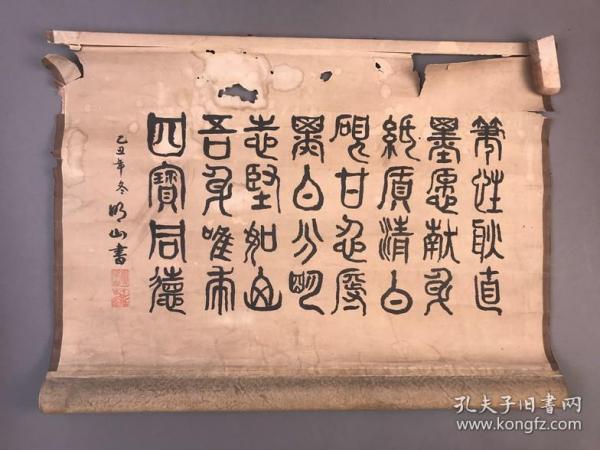 筆性耿直
墨愿献身
紙質清白
硯甘忍辱
黑白分明
志堅如
吾身唯
四寶同德
己丑年冬 明山書
孔夫子旧書网
www.kongfz.com